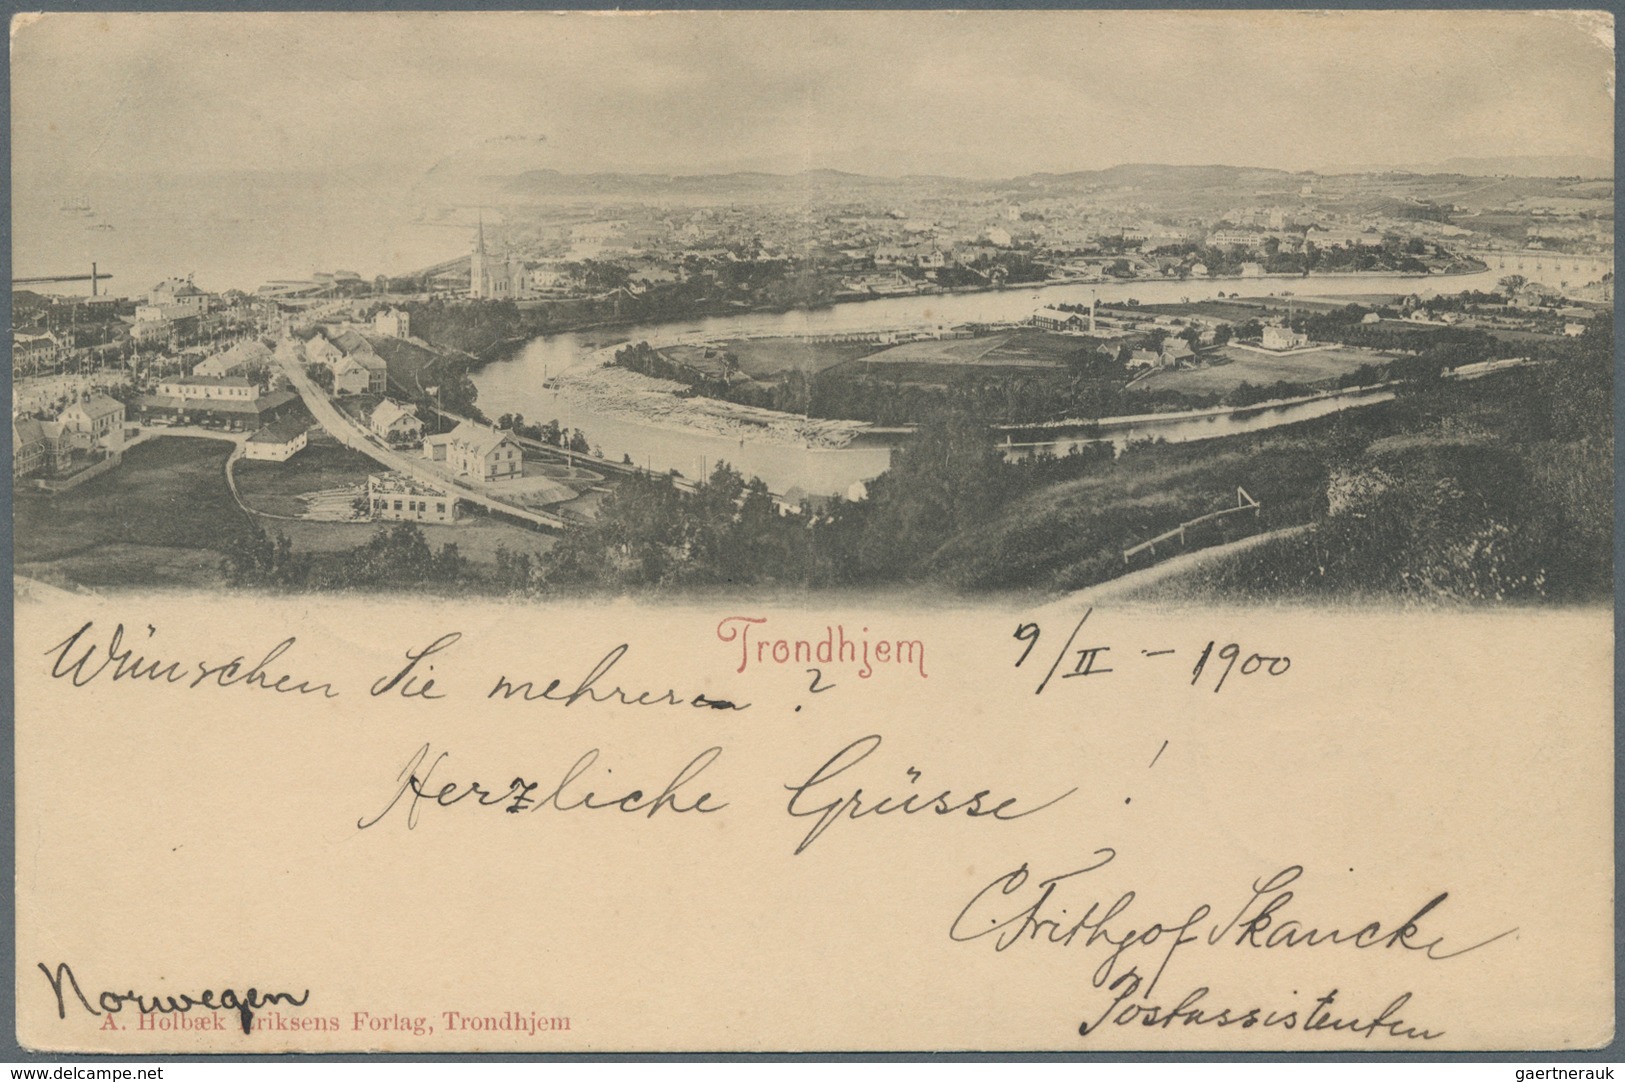 Trondhjem
9/II - 1900
Wünschen Sie mehreren ?
Herzliche Grüsse !
C. Frithjof Skancke
Postassistenten
Norwegen
A. Holbæk Eriksens Forlag, Trondhjem
www.delcampe.net
gaertnerauk